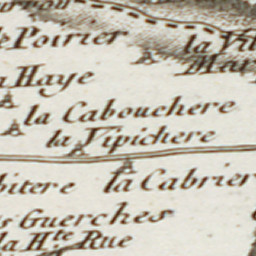 Poirier
la Vil
Mar
Haye
la Cabouchere
la Vipichere
bitere la Cabrier
Guerches
la Hte Rue